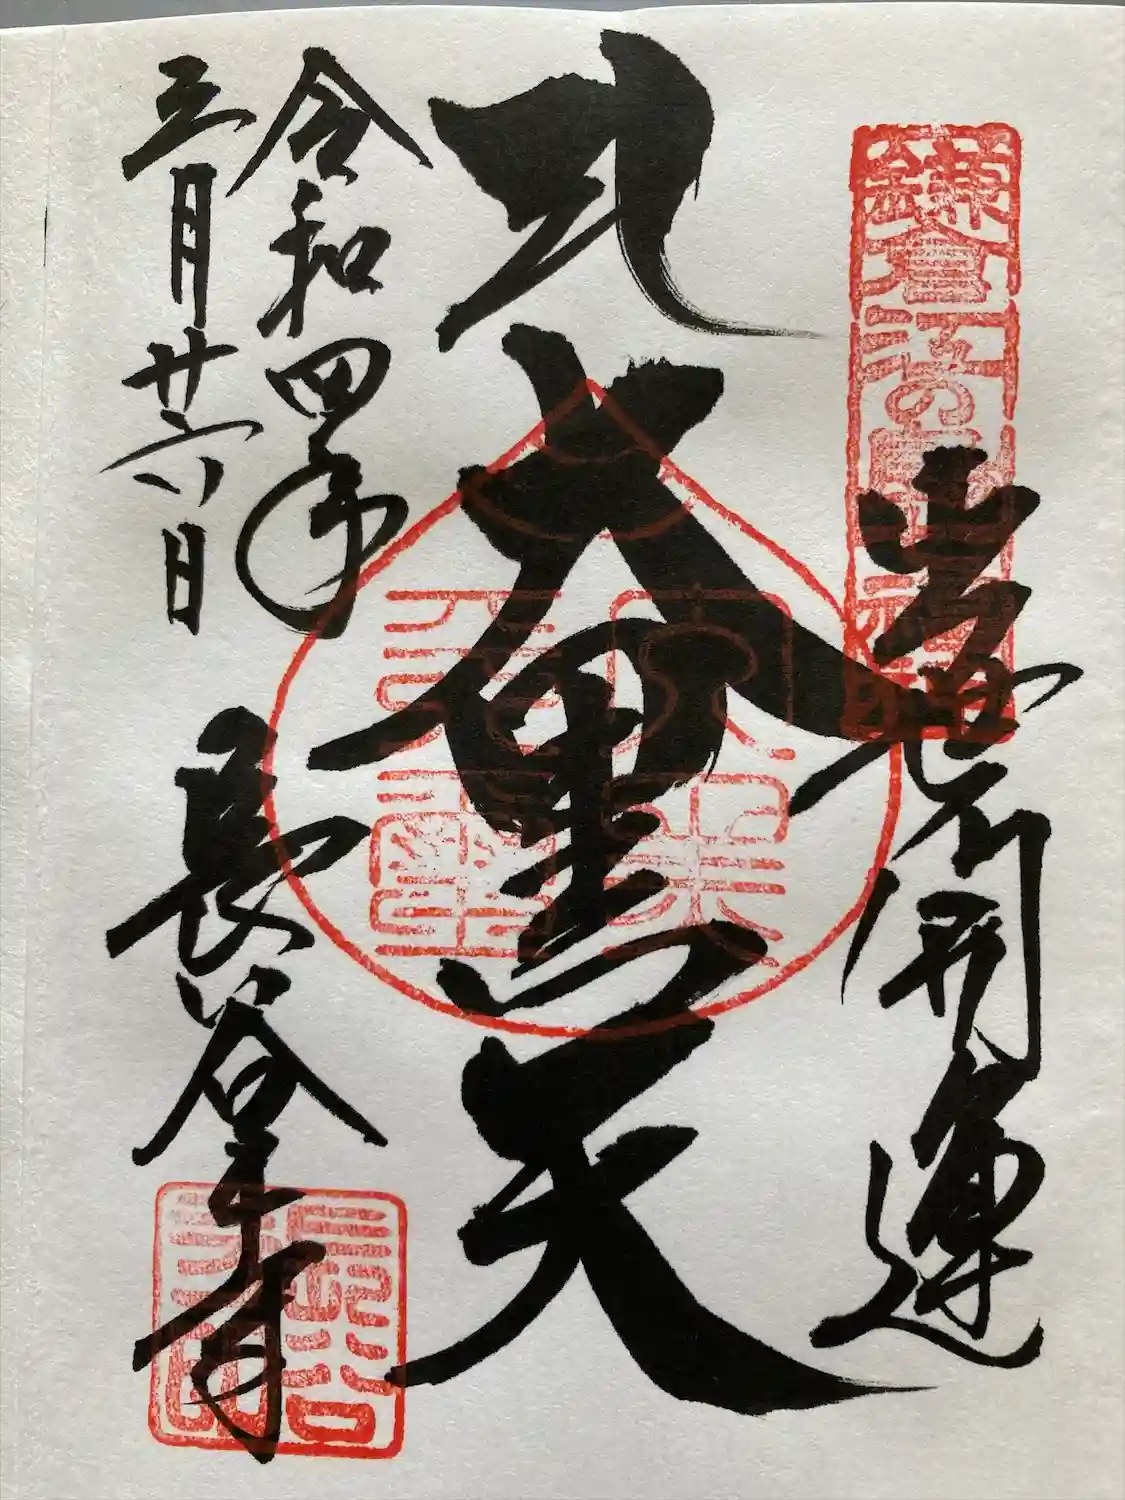 鎌倉江の島七福神
出世開運
大黒天
令和四年
三月廿六日
長谷寺